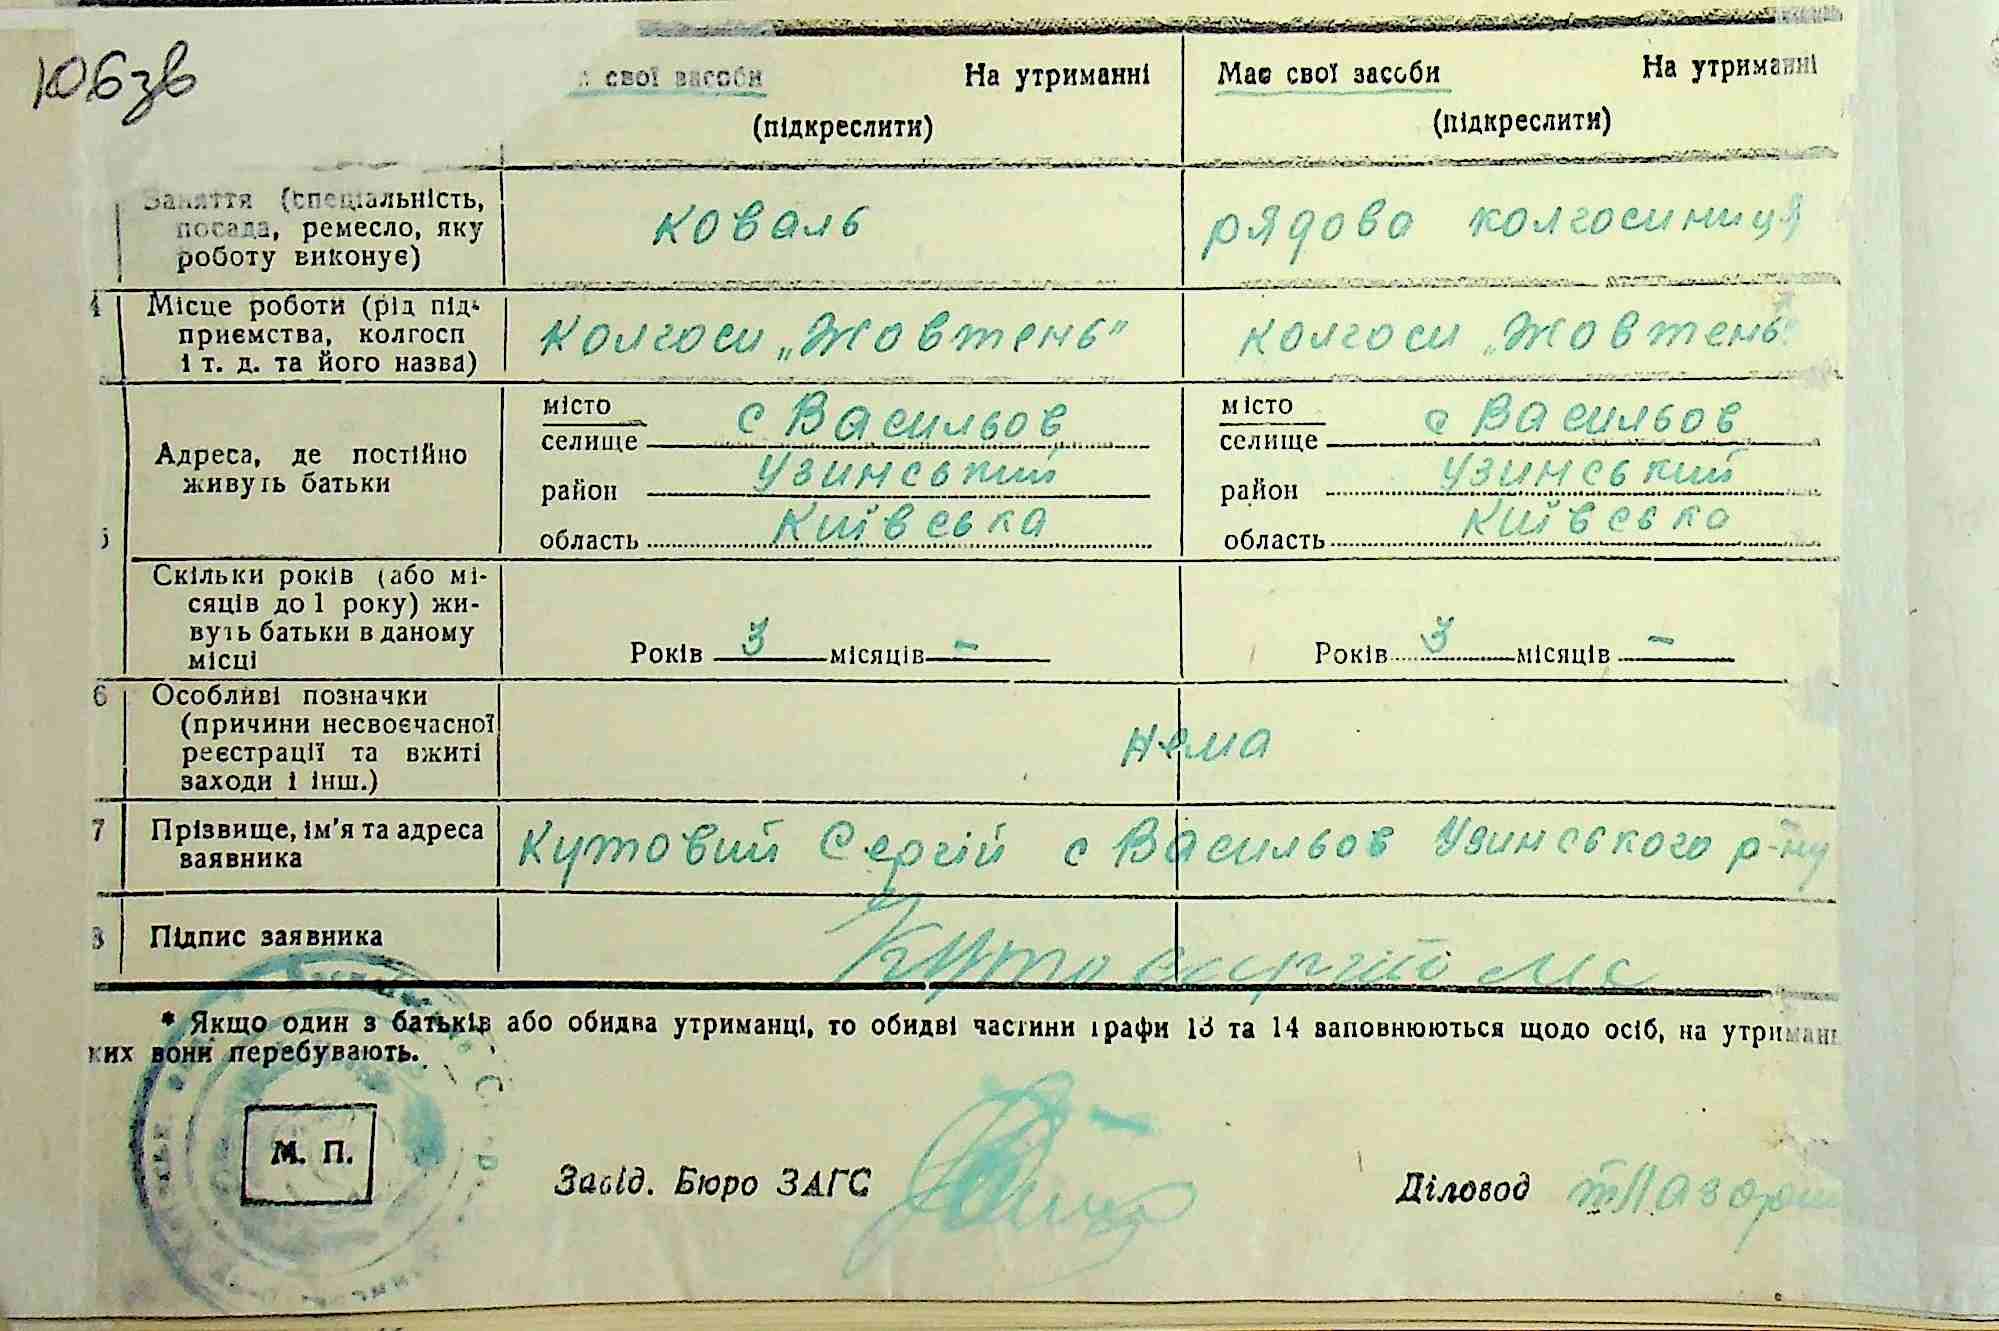 106зв
свої засоби На утриманні Має свої засоби На утриманні
(підкреслити) (підкреслити)
Заняття (спеціальність, посада, ремесло, яку роботу виконує) коваль рядова колгоспниця
4 Місце роботи (рід підприємства, колгосп і т. д. та його назва) колгосп „Жовтень" колгосп „Жовтень"
Адреса, де постійно живуть батьки
місто місто
селище с Васильов селище с Васильов
район Узинський район Узинський
область Київська область Київська
Скільки років (або місяців до 1 року) живуть батьки в даному місці Років 3 місяців – Років 3 місяців –
6 Особливі позначки (причини несвоєчасної реєстрації та вжиті заходи і інш.) нема
7 Прізвище, ім'я та адреса заявника Кутовий Сергій с Васильов Узинського р-ну
8 Підпис заявника
* Якщо один з батьків або обидва утриманці, то обидві частини графи 13 та 14 заповнюються щодо осіб, на
ких вони перебувають.
М. П.
Завід. Бюро ЗАГС Діловод